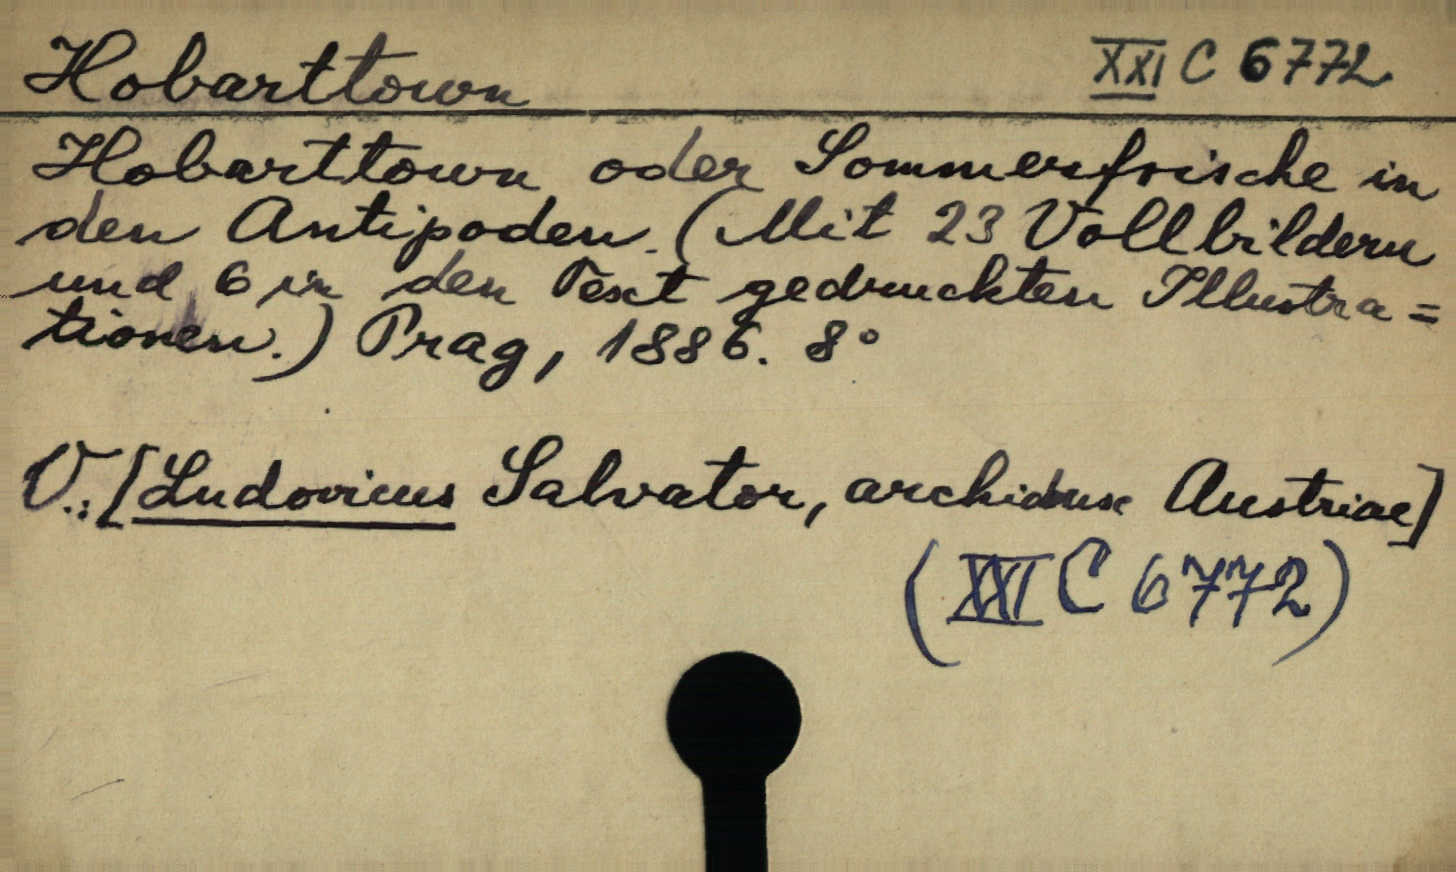 Hobarttown XXI C 6772
Hobarttown oder Sommerfrische in
den Antipoden. (Mit 23 Vollbildern
und 6 in den Text gedruckten Illustra=
tionen.) Prag, 1886. 8°
V.: [Ludovicus Salvator, archidux Austriae]
(XXI C 6772)